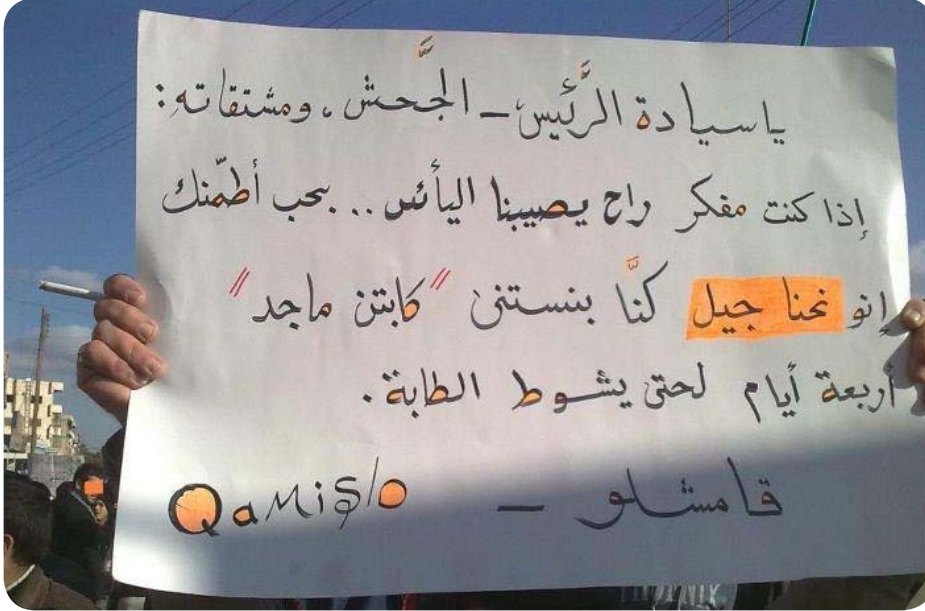 يا سيادة الرَّئيس - الجَّحش، ومشتقاته:
إذا كنت مفكر راح يصيبنا اليأس.. بحب أطمّنك
إنو نحنا جيل كنَّا بنستنى "كابتن ماجد"
أربعة أيام لحتى يشوط الطابة.
قامشلو - QaMiṢlo